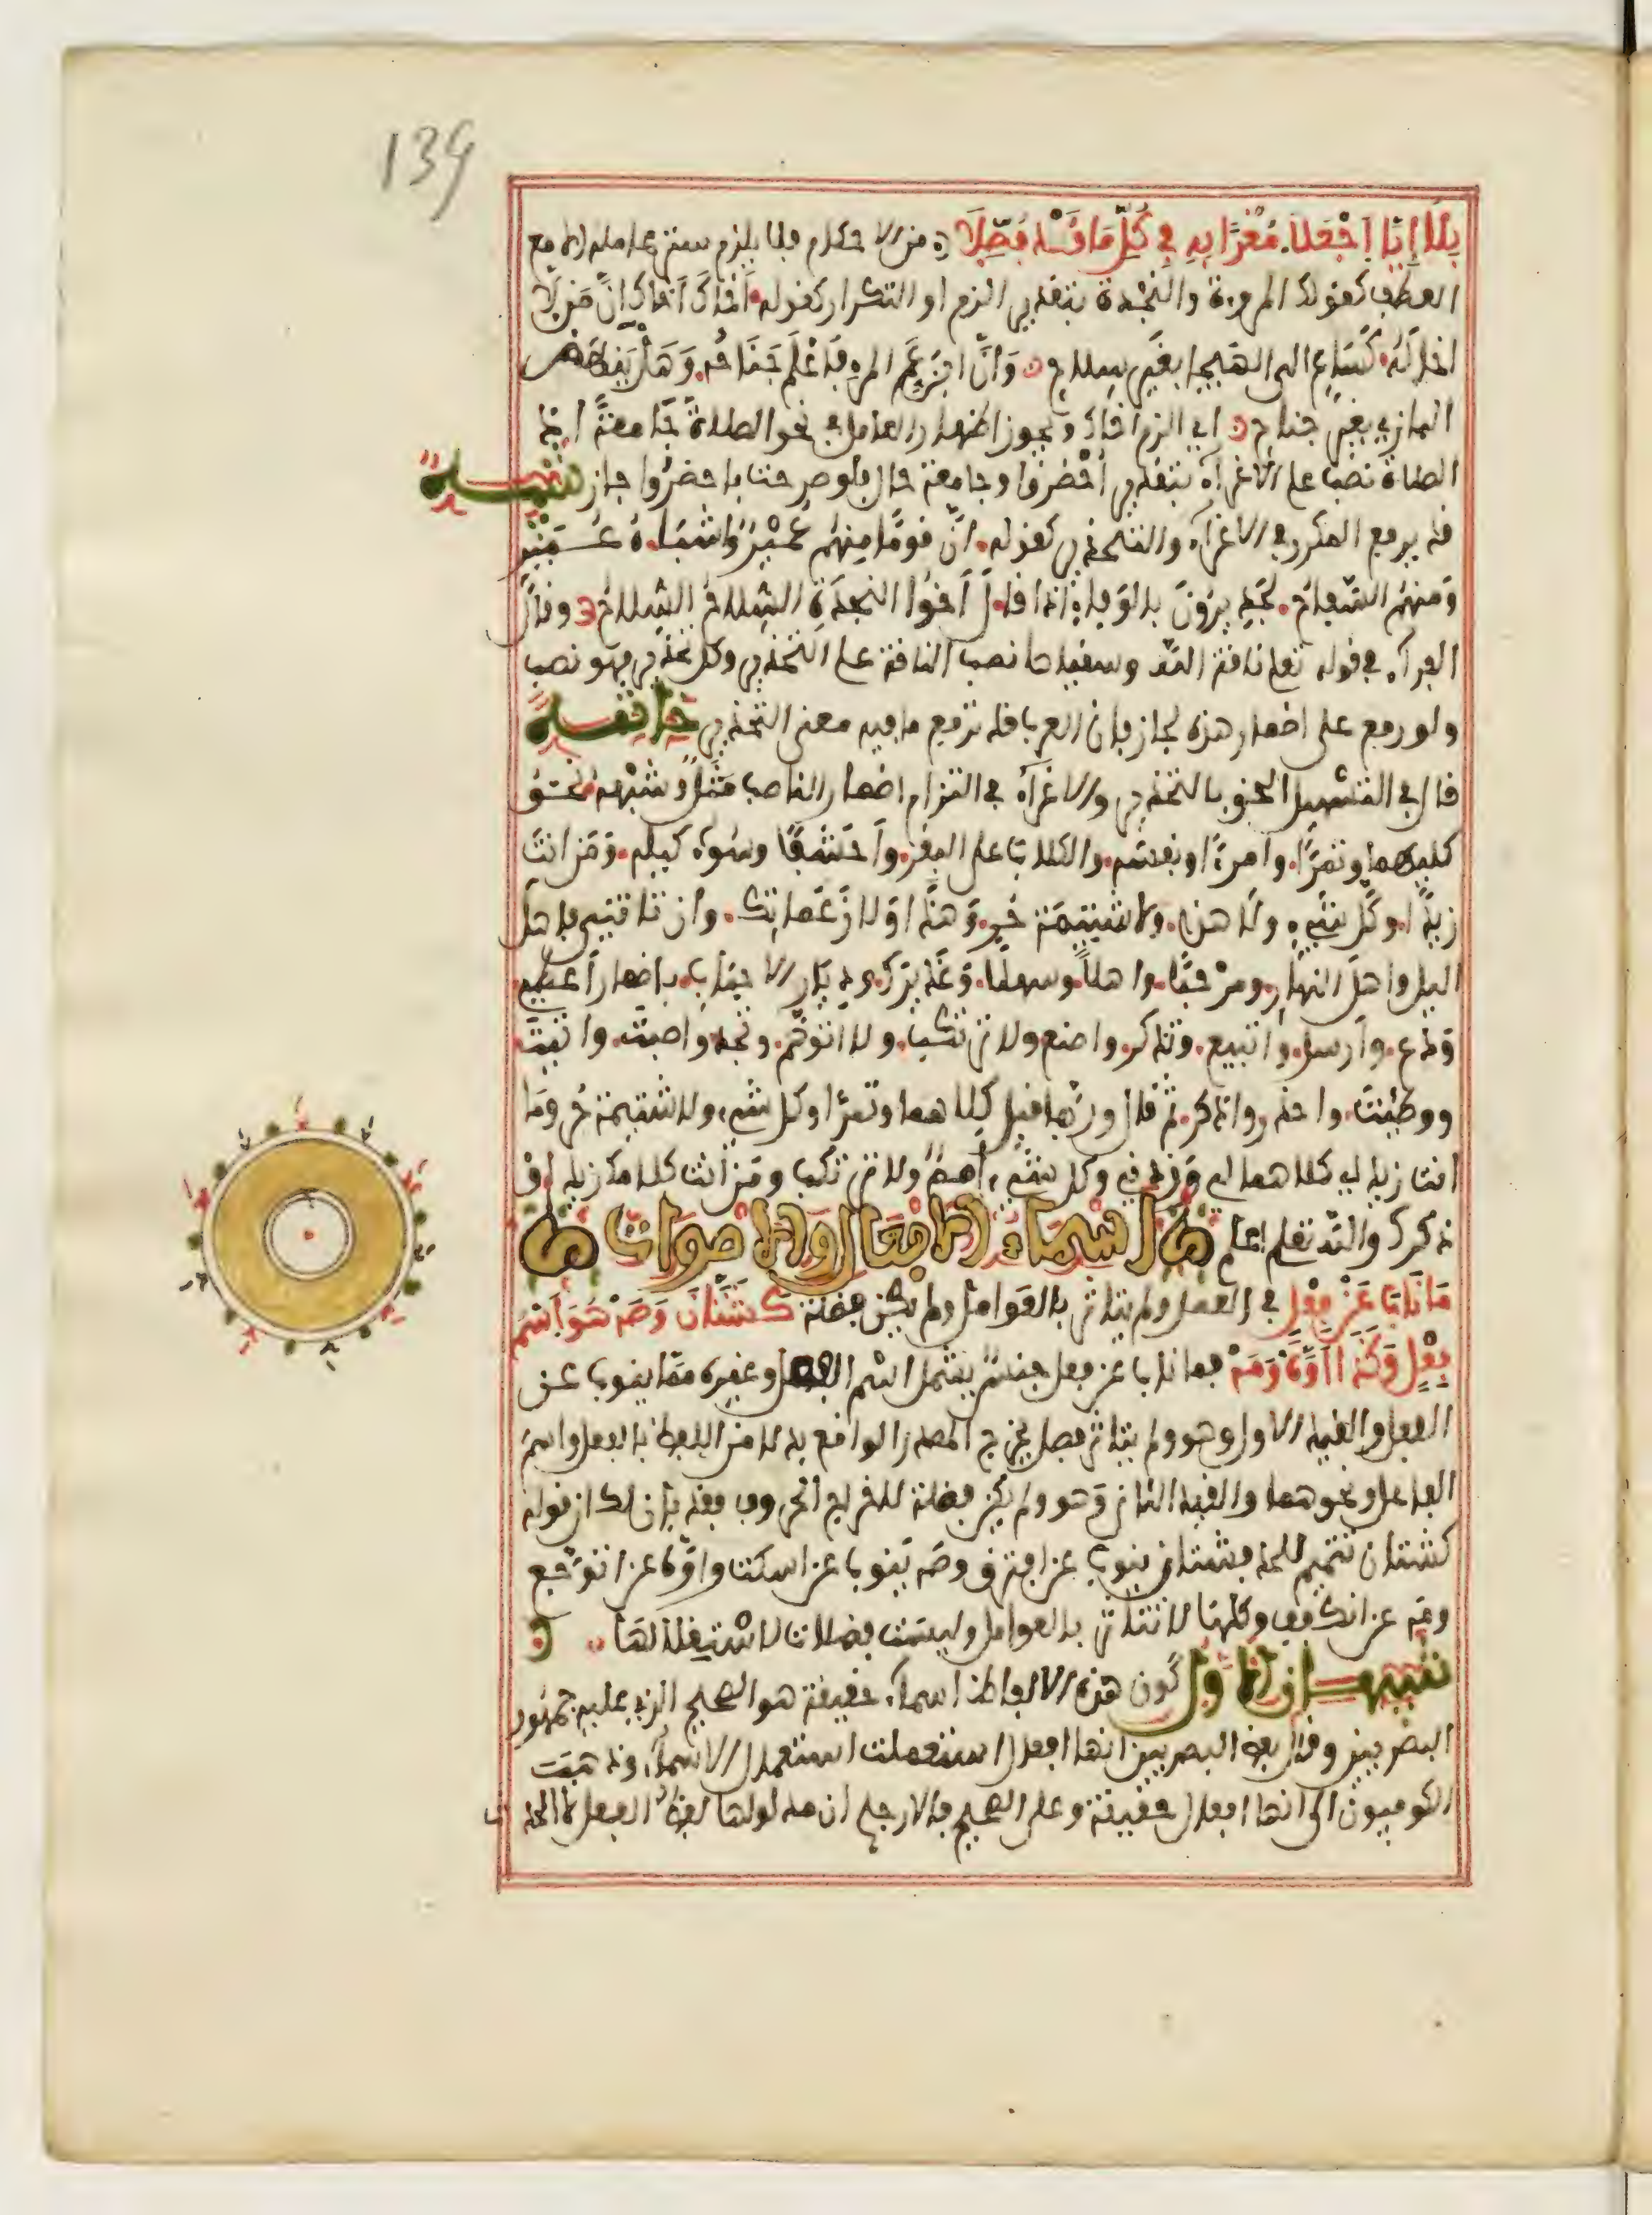 139
بلا إيا اجعلا مغرا به في كل ما قد فصلا من الاحكام فلا يلزم ستر عامله الا مع
العطف كقولك المروءة والنجدة بتقدير الزم او التكرار كقوله اخاك اخاك ان من لا
اخا له كساع الى الهيجا بغير سلاح وان ابن عم المرء فاعلم جناحه وهل ينهض
البازي بغير جناح اي الزم اخاك ويجوز اظهار العامل في نحو الصلاة جامعة اذ
الصلاة نصب على الاغراء بتقدير احضروا وجامعة حال فلو صرحت باحضروا جاز تنبيه
قد يرفع المكرر في الاغراء والتحذير كقوله ان قوما منهم عمير واشباه عمير
ومنهم السفاح لجديرون بالوفاء اذا قال اخوا النجدة السلاح السلاح وقال
الفراء في قوله تعلى ناقة الله وسقياها نصب الناقة على التحذير وكل تحذير فهو نصب
ولو رفع على اضمار هذه لجاز فان العرب قد ترفع ما فيه معنى التحذير خاتمة
قال في التسهيل الحق بالتحذير والاغراء في التزام اضمار الناصب مثل وشبهه نحو
كليهما وتمرا وامرءا ونفسه والكلاب على البقر واحشفا وسوء كيلة ومن انت
زيدا وكل شيء ولا هذا ولا شتيمة حر وهذا ولا زعماتك وان تاتني فاهل
اليل واهل النهار ومرحبا واهلا وسهلا وعذيرك وديار الاحباب باضمار اعطني
ودع وارسل واتبيع وتذكر واصنع ولا ترتكب ولا اتوهم وتجد واصبت واتيت
ووطئت واحضر واذكر ثم قال وربما قيل كلاهما وتمرا وكل شيء ولا شتيمة حر ومن
انت زيد اي كلاهما لي وزدني وكل شيء امم ولا ترتكب ومن انت كلامك زيد او
ذكرك والله تعلى اعلم اسماء الافعال والاصوات
ما ناب عن فعل في العمل ولم يتاثر بالعوامل ولم يكن فضلة كشتان وصه هو اسم
فعل وكذا اوه ومه فما ناب عن فعل جنس يشمل اسم الفعل وغيره مما ينوب عن
الفعل والقيد الاول وهو ولم يتاثر فصل يخرج المصدر الواقع بدلا من اللفظ بالفعل واسم
الفاعل ونحوهما والقيد الثاني وهو ولم يكن فضلة لاخراج الحروف فقد بان لك ان قوله
كشتان تتميم للحد فشتان ينوب عن افترق وصه ينوب عن اسكت واوه عن اتوجع
ومه عن انكفف وكلها لا تتاثر بالعوامل وليست فضلات لاستقلالها
تنبيهان الاول كون هذه الالفاظ اسماء حقيقة هو الصحيح الذي عليه جمهور
البصريين وقال بعض البصريين انها افعال استعملت استعمال الاسماء وذهبت
الكوفيون الى انها افعال حقيقة وعلى الصحيح فالارجح ان مدلولها لفظ الفعل لا الحد ث